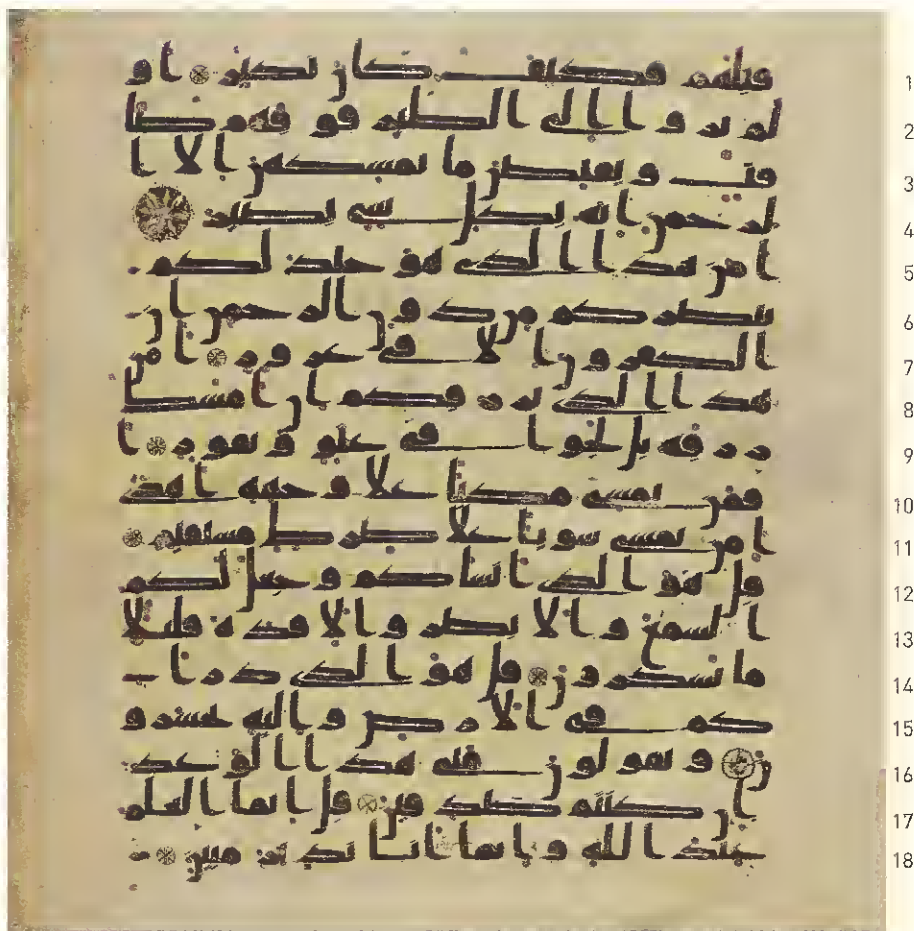 قبلهم فكيف كان نكير او 1
لم يروا الى الطير فوقهم صا 2
فت ويقبضن ما يمسكهن الا ا 3
لرحمن انه بكل شي بصير 4
امن هذا الذي هو جند لكم 5
ينصركم من دون الرحمن ان 6
الكفرون الا في غرور امن 7
هذا الذي يرزقكم ان امسك 8
رزقه بل لجوا في عتو ونفور ا 9
فمن يمشي مكبا على وجهه اهدى 10
امن يمشي سويا على صرط مستقيم 11
قل هو الذي انشاكم وجعل لكم 12
السمع والابصر والافدة قليلا 13
ما تشكرون قل هو الذي ذرا 14
كم في الارض واليه تحشرو 15
ن ويقولون متى هذا الوعد 16
ان كنتم صدقين قل انما العلم 17
عند الله وانما انا نذير مبين 18